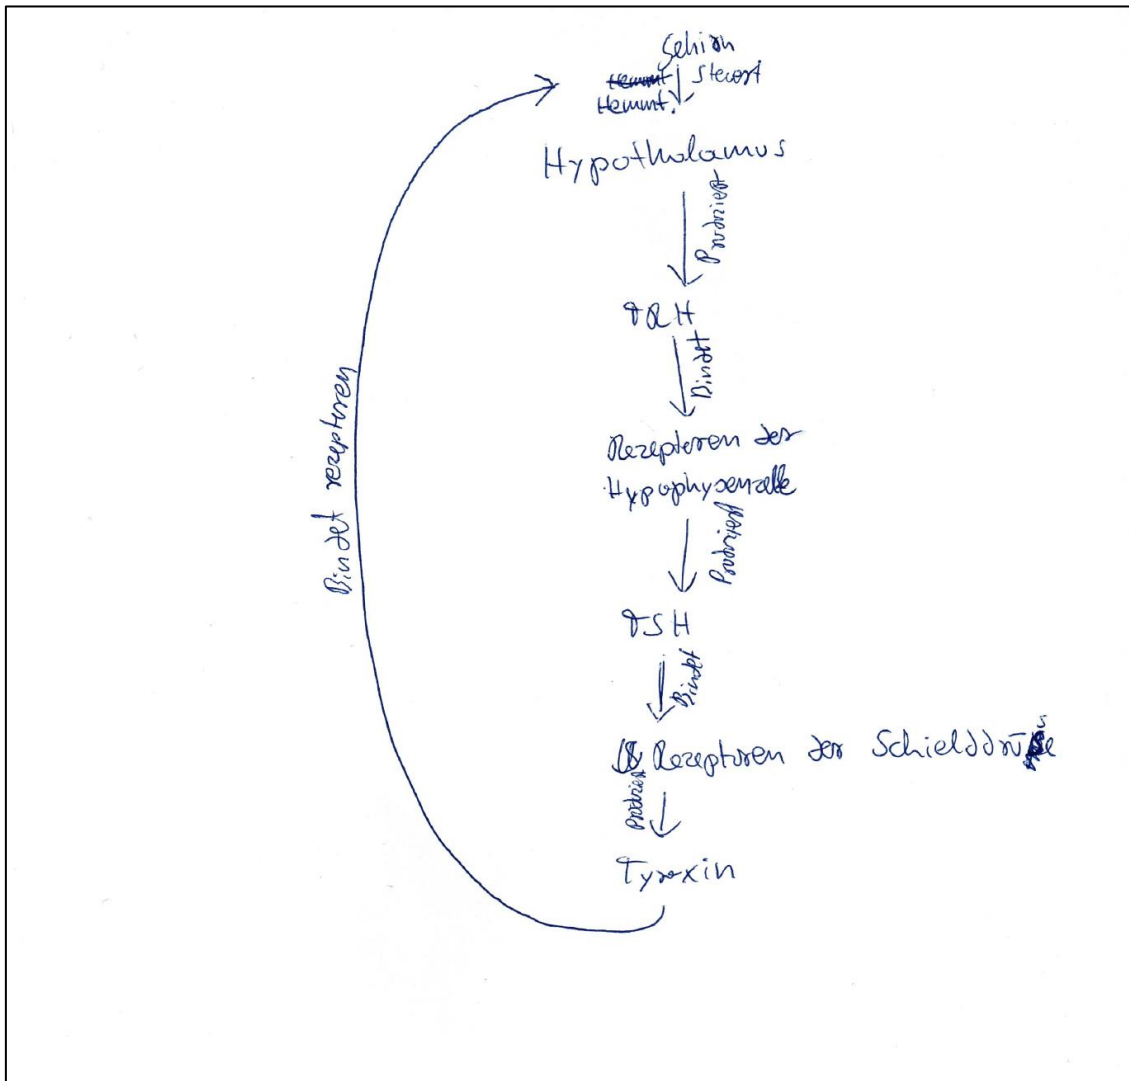 Gehirn
Hemmt
Steuert
Hemmt.
Hypothalamus
Produziert
TRH
Bindet
Rezeptoren der
Hypophysenzelle
Produziert
TSH
Bindet
Rezepturen der Schielddrüse
Produziert
Tyroxin
Bindet rezepturen